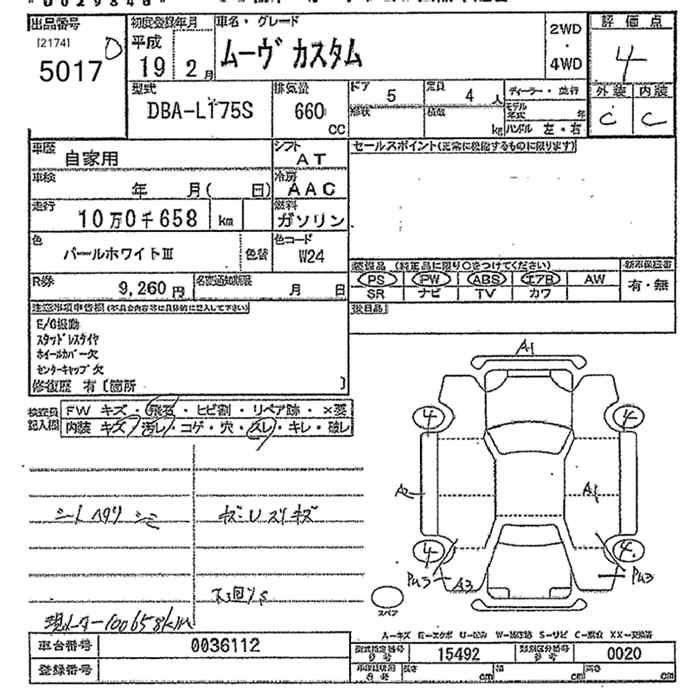 出品番号 初度登録年月 車名・グレード 2WD 評価点
[2174] 平成 ・
5017 D 19 2月 ムーヴ カスタム 4WD 4
型式 排気量 ドア 5 定員 4人 ディーラー・並行 外装 内装
DBA-L175S 660 CC 形状 積載 kg モデル年式 年 C C
ハンドル 左・右
車歴 自家用 シフト AT セールスポイント(正常に機能するものに限ります)
車検 年 月( 日) 冷房 AAC
走行 10万0千658 km 燃料 ガソリン
色 パールホワイトⅢ 色替 色コード W24
装備品 (純正品に限り○をつけてください) 新車保証書
PS PW ABS エアB AW 有・無
SR ナビ TV カワ
R券 9,260円 名変通知期限 月 日
後日品
注意事項申告欄(不具合内容等は具体的に記入して下さい)
E/G振動
スタッドレスタイヤ
ホイールカバー欠
センターキャップ欠
修復歴 有〔箇所 〕
検査員記入欄 FW キズ・飛石・ヒビ割・リペア跡・×要
内装 キズ・汚レ・コゲ・穴・スレ・キレ・破レ
A1
4 4
A2 A1
4 4
PU3 A3 PU3
シートヘタリ シミ
キズ・Uスリキズ
スペア
現メーター100658km
A-キズ E-エクボ U-凹み W-補修跡 S-サビ C-腐食 XX-交換済
車台番号 0036112 型式指定番号 15492 類別区分番号 0020
登録番号 長さ cm 幅 cm 高さ cm